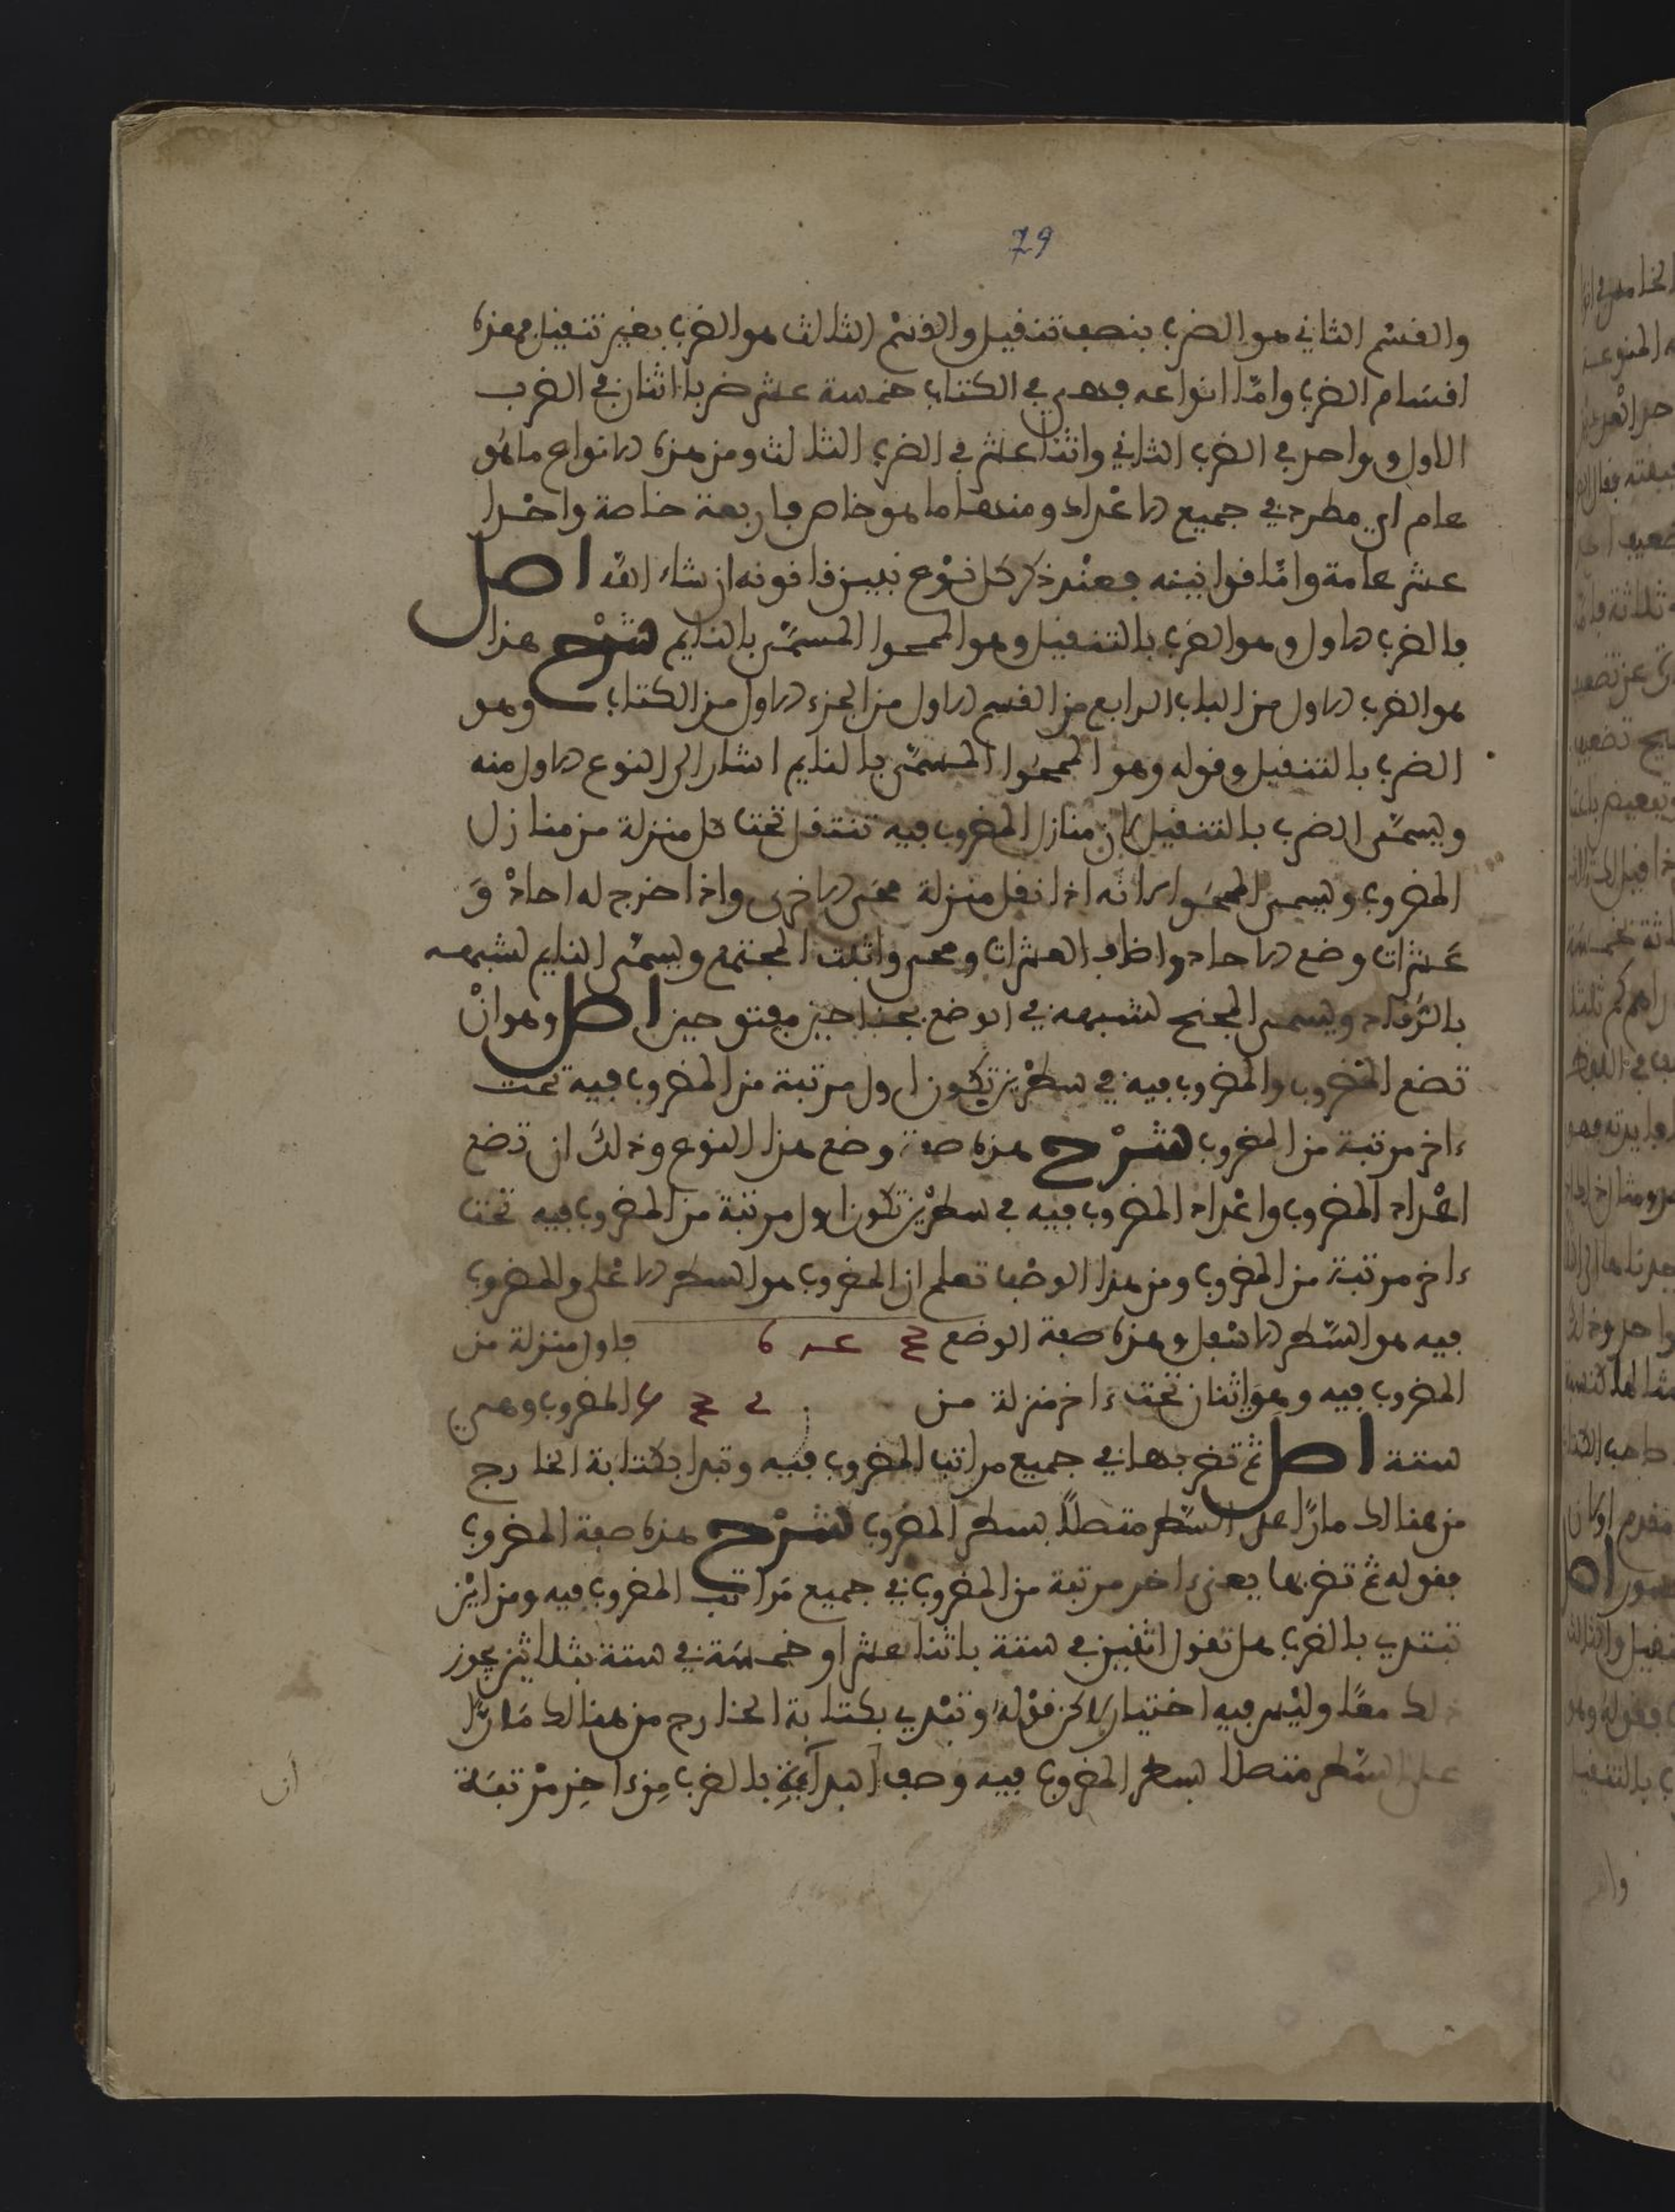 79
والقسم الثاني هو الضرب بنصف تنقيل والقسم الثالث هو الضرب بغير تنقيل فهذه
اقسام الضرب وامّا انواعه فهي في الكتاب خمسة عشر ضربا اثنان في الضرب
الاول وواحد في الضرب الثاني واثنا عشر في الضرب الثالث ومن هذه الانواع ما هو
عام اي مطرد في جميع الاعداد ومنها ما هو خاص فاربعة خاصة واحدا
عشر عامة وامّا قوانينه فعند ذكر كل نوع نبين قانونه ان شاء الله اصل
فالضرب الاول وهو الضرب بالتنقيل وهو الممحوا المسمّى بالنايم شرح هذا
هو الضرب الاول من الباب الرابع من القسم الاول من الجزء الاول من الكتاب وهو
الضرب بالتنقيل وقوله وهو الممحوا المسمّى بالنايم اشار الى النوع الاول منه
ويسمّى الضرب بالتنقيل لان منازل المضروب فيه تنتقل تحت كل منزلة من منازل
المضروب ويسمى الممحوا لانه اذا نقل منزلة محى الاخرى واذا خرج له احاد و
عشرات وضع الاحاد واضاف العشرات ومحى واثبت المجتمع ويسمّى النايم لشبهه
بالرقاد ويسمى المجنح لشبهه في الوضع بجناحين مفتوحين اصل وهو ان
تضع المضروب والمضروب فيه في سطرين تكون اول مرتبة من المضروب فيه تحت
ءاخر مرتبة من المضروب شرح هذه صفة وضع هذا النوع وذلك ان تضع
اعداد المضروب واعداد المضروب فيه في سطرين تكون اول مرتبة من المضروب فيه تحت
ءاخر مرتبة من المضروب ومن هذا الوضع تعلم ان المضروب هو السطر الاعلى والمضروب
فيه هو السّطر الاسفل وهذه صفة الوضع فاول منزلة من
المضروب فيه وهو اثنان تحت ءاخر منزلة من المضروب وهي
ستة اصل ثم تضربها في جميع مراتب المضروب فيه وتبدا بكتابة الخارج
من هنالك مارًا على السّطر متصلًا بسطر المضروب شرح هذه صفة المضروب
فقوله ثم تضربها يعني ءاخر مرتبة من المضروب في جميع مراتب المضروب فيه ومن اين
تبتدي بالضرب هل تقول اثنين في ستة باثنا عشر او خمسة في ستة بثلاثين يجوز
ذلك معًا وليس فيه اختيار لاكن قوله وتبدي بكتابة الخارج من هنالك مَارًّا
على السّطر متصلا بسطر المضروب فيه وصف ابدايّة بالضرب من ءاخر مرتبة
أن